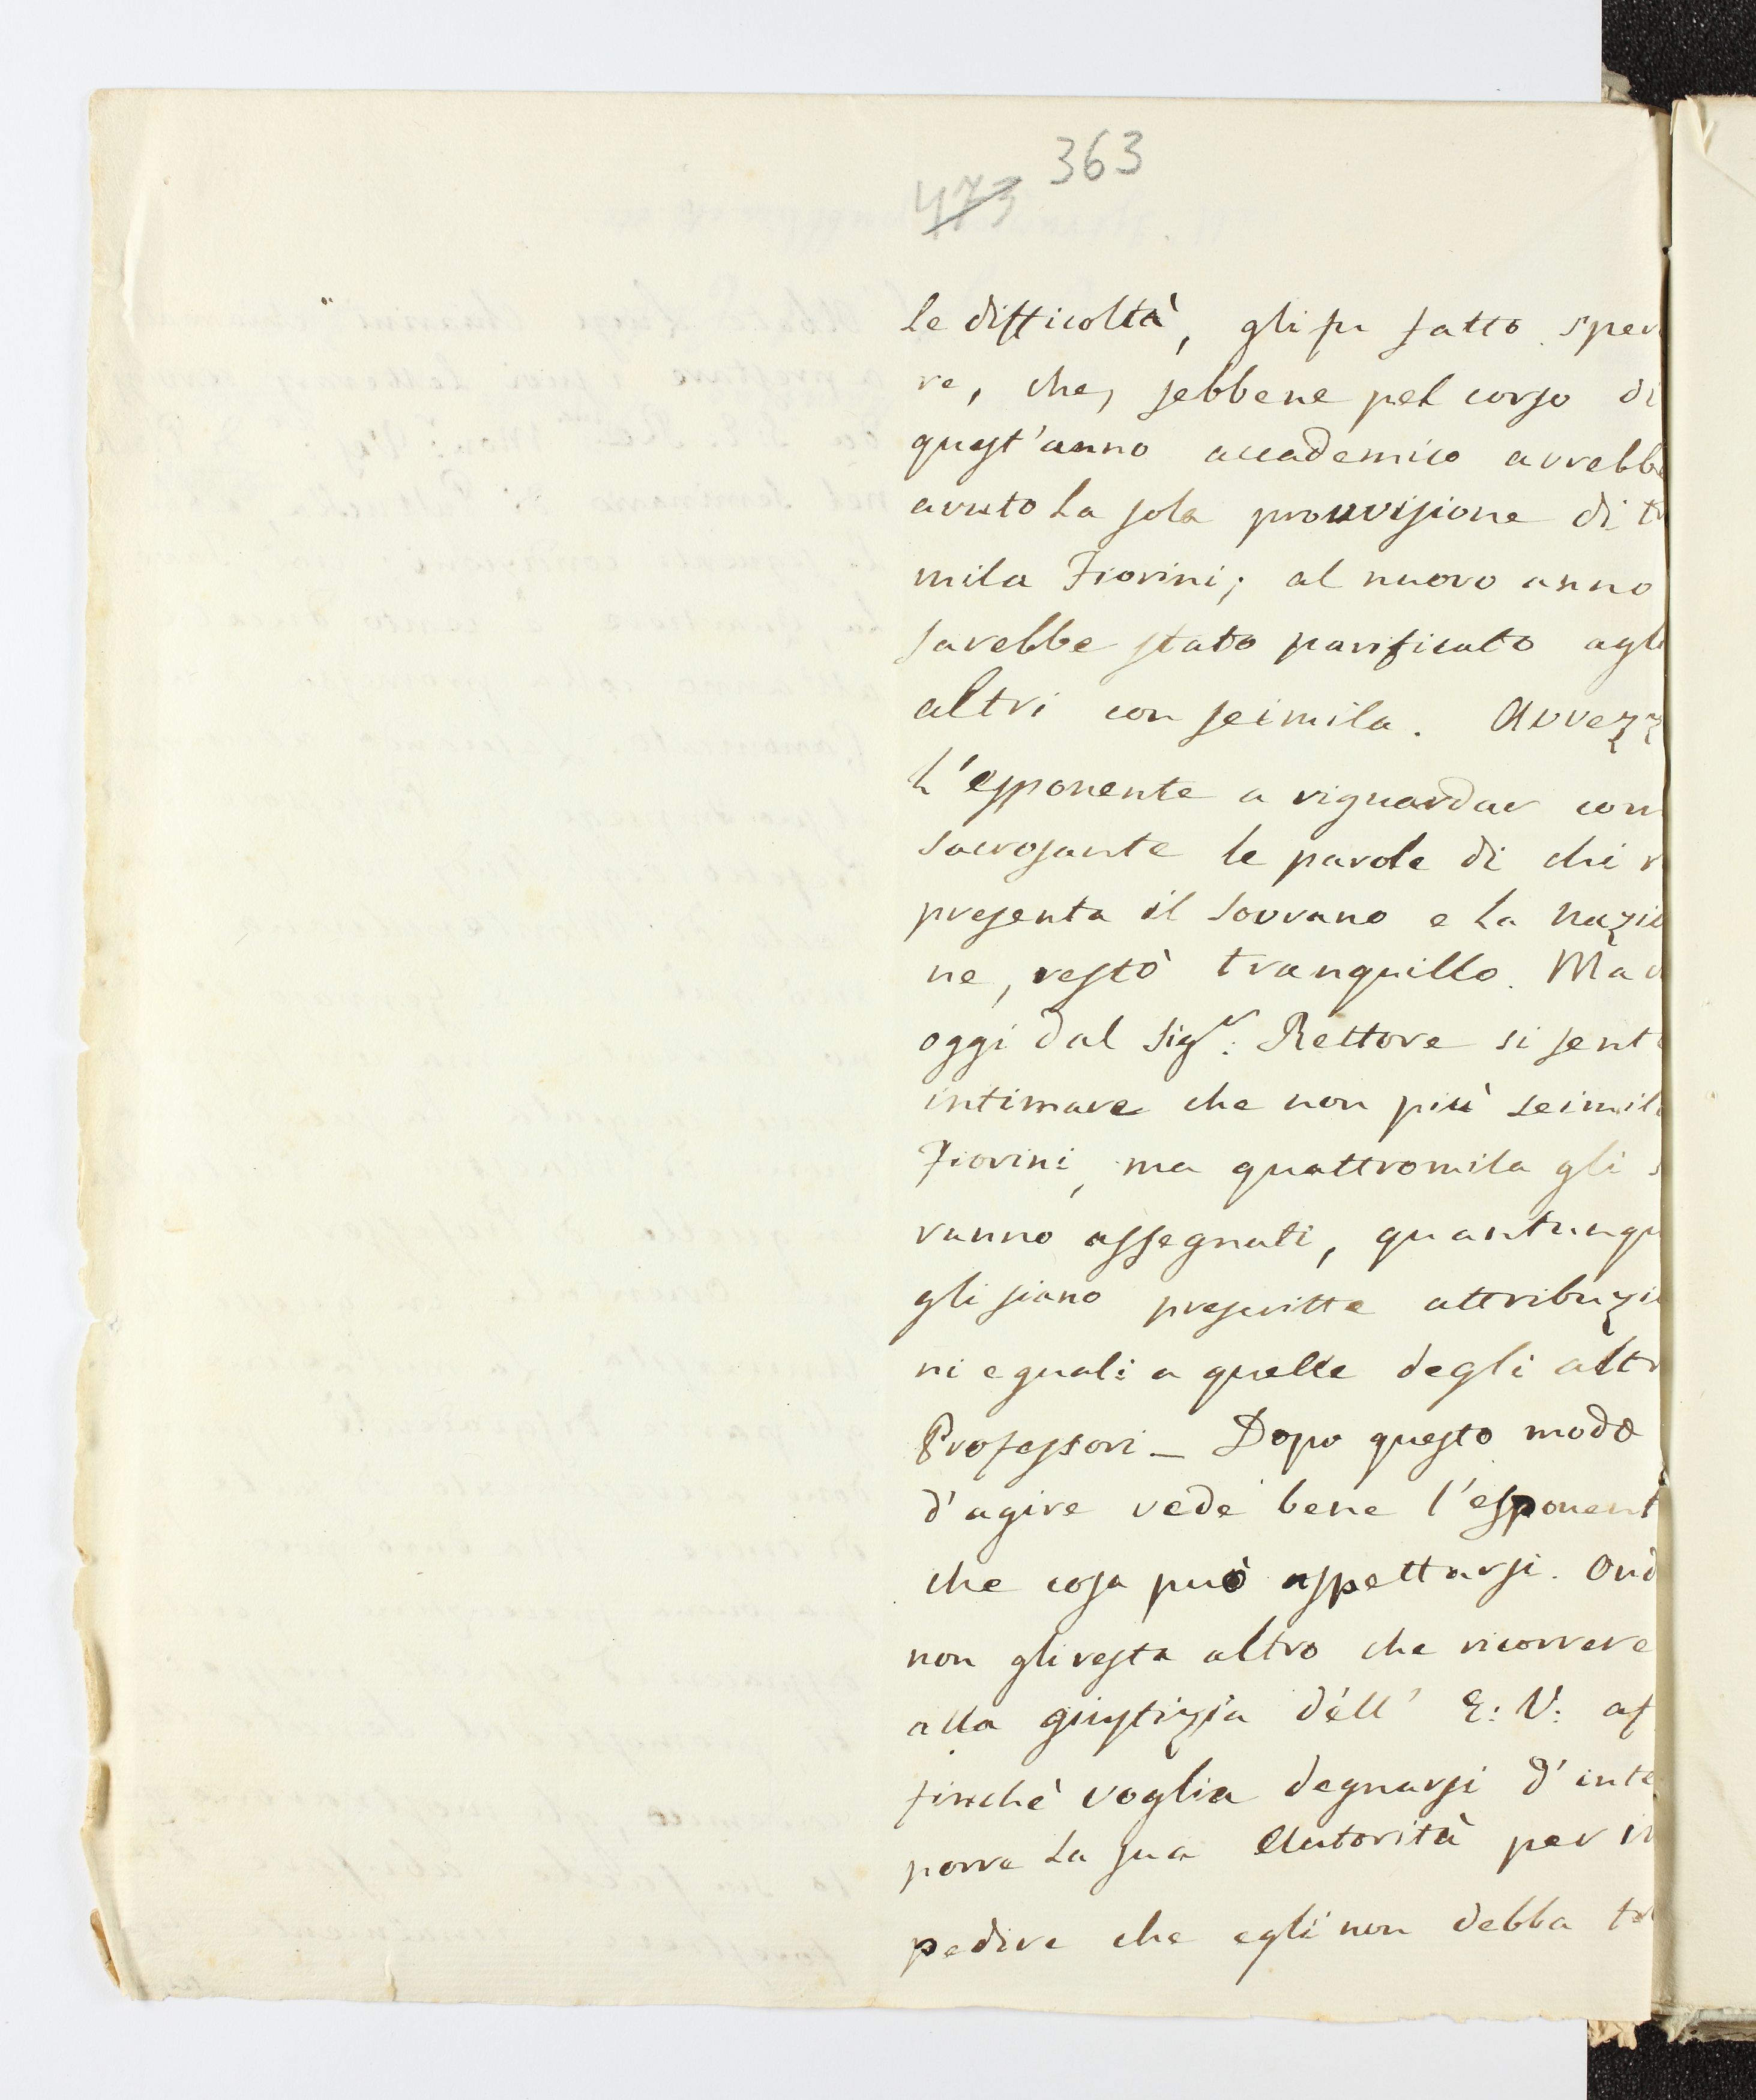 363
473
le difficoltà, gli fu fatto spera
re, che, sebbene pel corso di
quest'anno accademico avrebbe
avuto la sola provvisione di t
mila Fiorini; al nuovo anno
sarebbe stato parificato agli
altri con seimila. Avvezz
L'esponente a riguardar com
sacrosante le parole di chi r
presenta il Sovrano e la Nazio
ne, restò tranquillo. Ma
oggi dal Sigr: Rettore si sent
intimare che non più seimil
Fiorini, ma quattromila gli s
ranno assegnati, quantunqu
gli siano prescritte attribuzio
ni eguali a quelle degli altr
Professori _ Dopo questo modo
d'agire vede bene l'esponent
che cosa può aspettarsi. Ond
non gli resta altro che ricorrere
alla giustizia dell' E: V: af
finchè voglia degnarsi d'inte
porre la sua Autorità per im
pedire che egli non debba